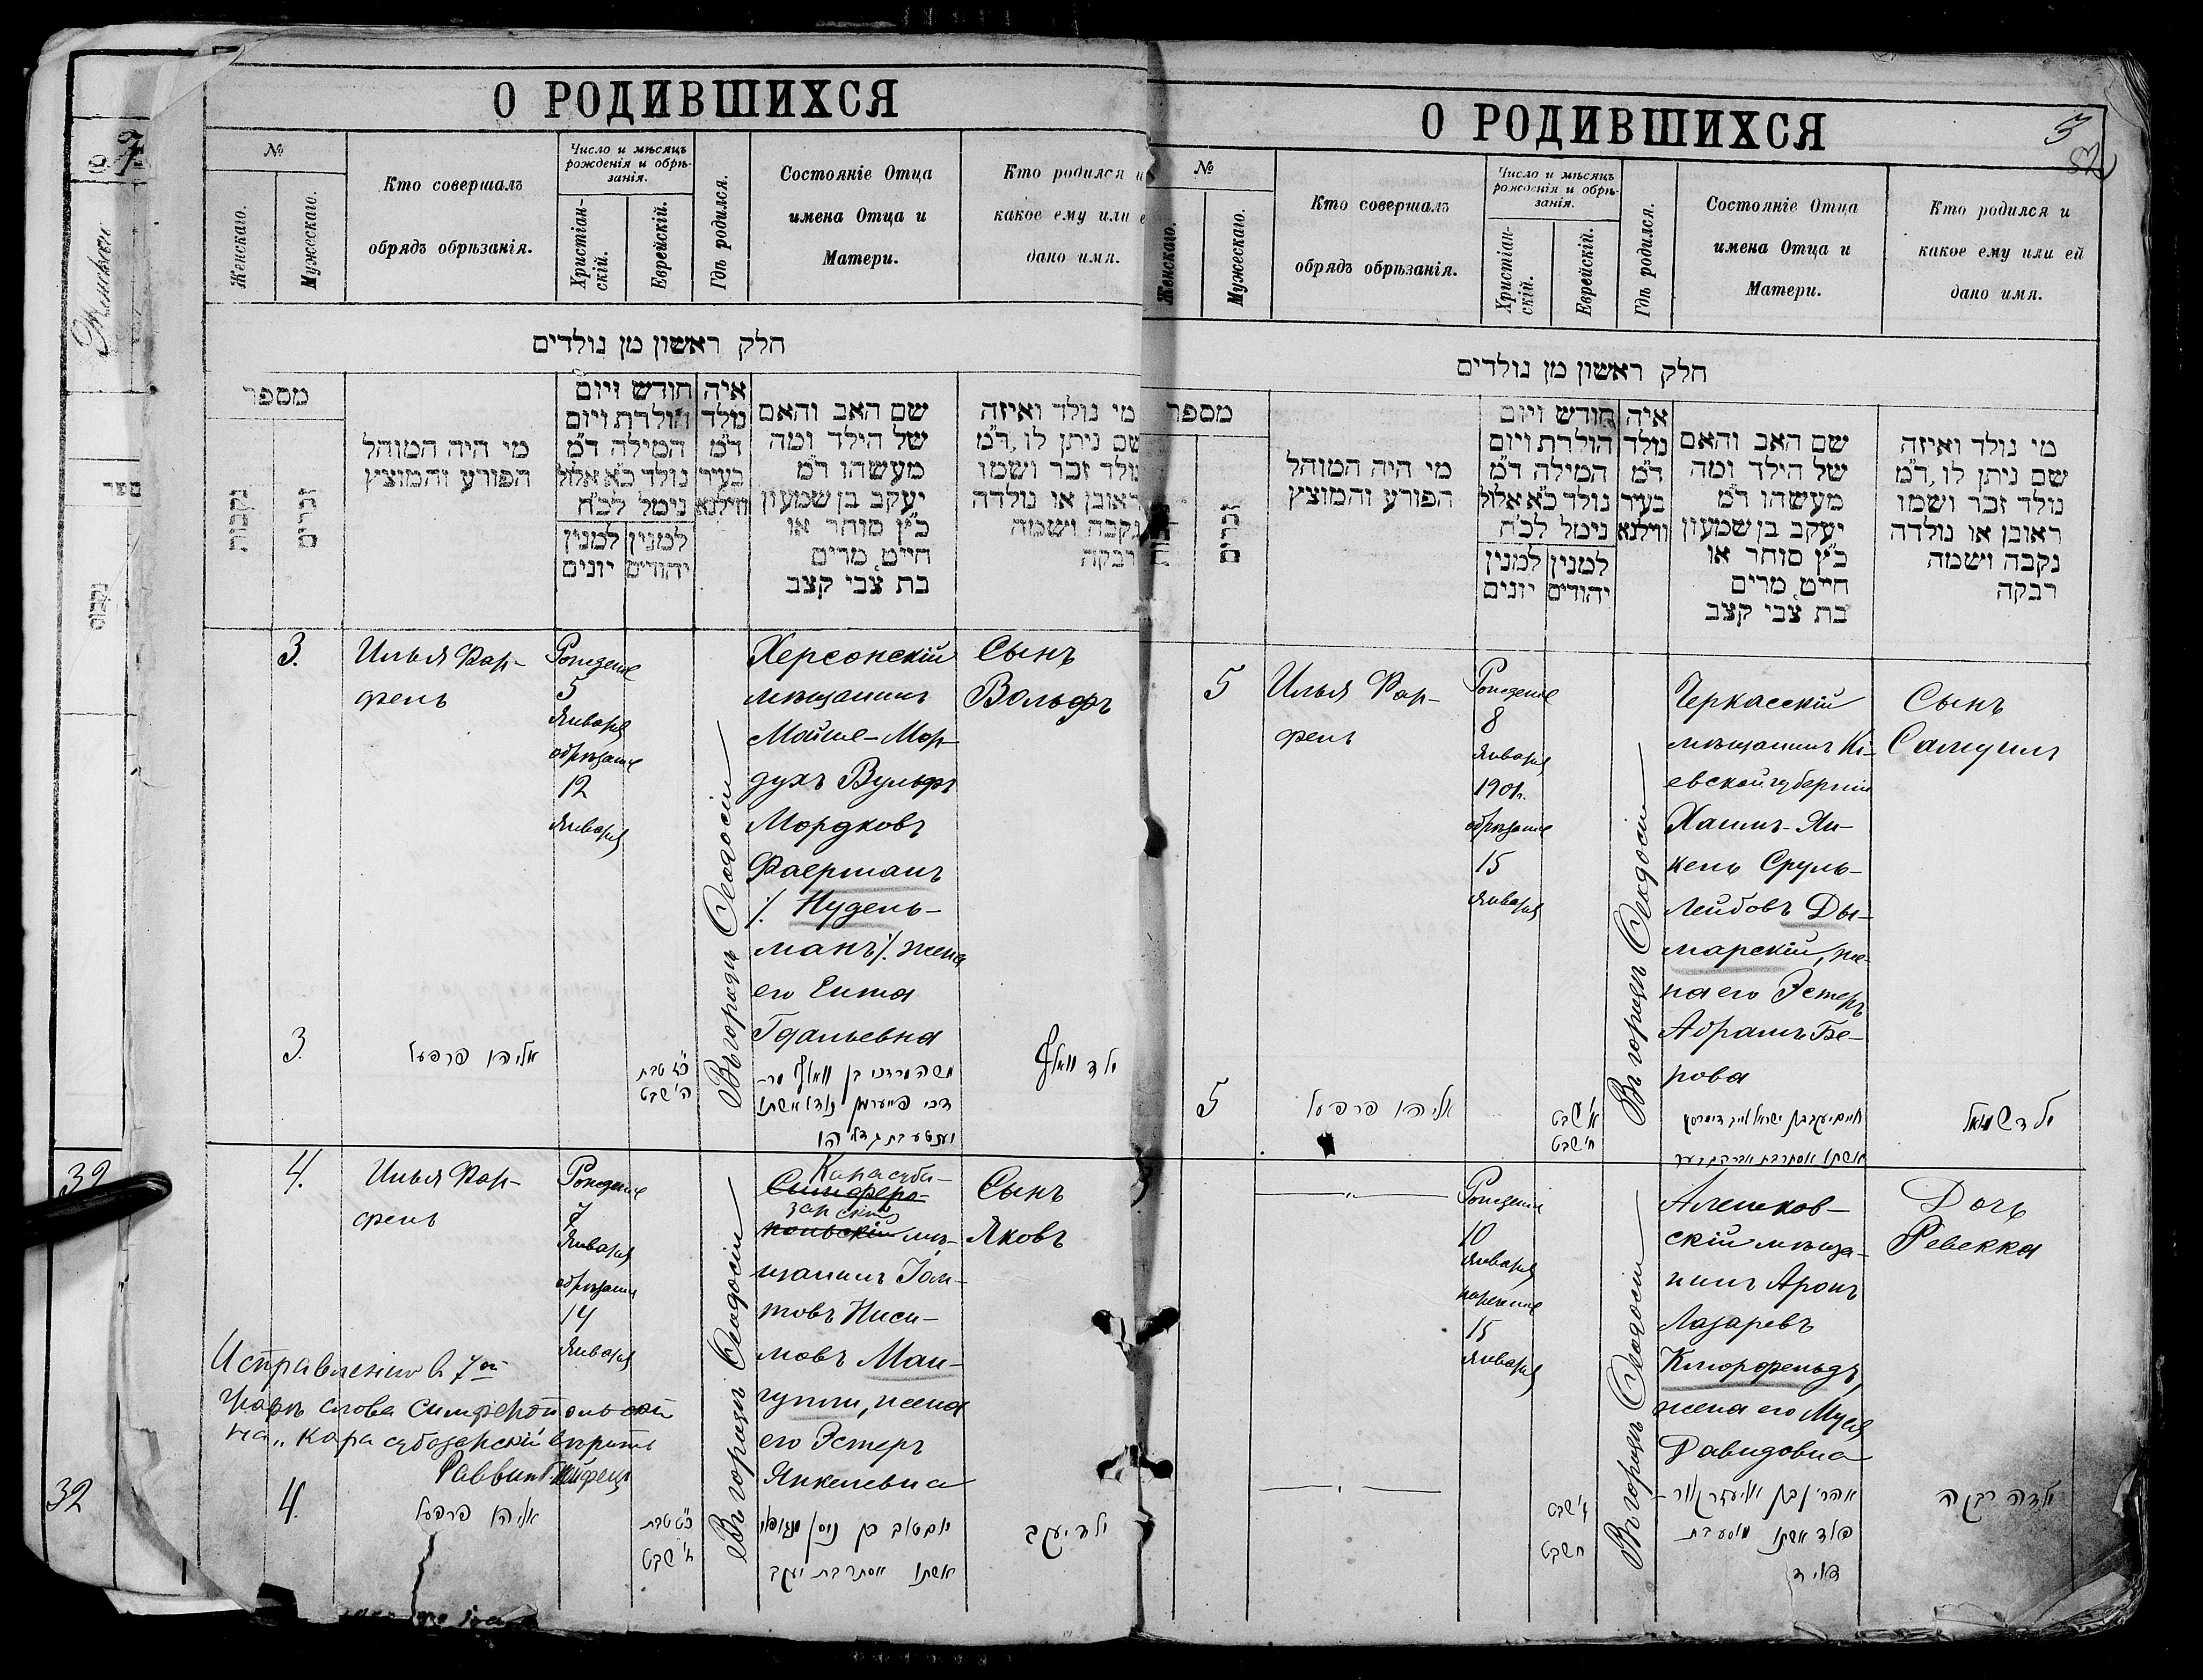 О РОДИВШИХСЯ
№
Женскаго.
Мужескаго.
Кто совершалъ
обрядъ обрѣзанія.
Число и мѣсяцъ
рожденія и обрѣ-
занія.
Христіан-
скій.
Еврейскій.
Гдѣ родился.
Состояніе Отца
имена Отца и
Матери.
Кто родился и
какое ему или е
дано имя.
חלק ראשון מן נולדים
מספר
נקבות
זכרים
מי היה המוהל
הפורע והמוצץ
חודש ויום
הולדת ויום
המילה ד״מ
נולד כ״א אלול
נימל לכ״ח
למנין
יהודים
למנין
יונים
איה
נולד
ד״מ
בעיר
ווילנא
שם האב והאם
של הילד ומה
מעשהו ד״מ
יעקב בן שמעון
כ״ץ סוחר או
חייט, מרים
בת צבי קצב
מי נולד ואיזה
שם ניתן לו, ד״מ
נולד זכר ושמו
ראובן או נולדה
נקבה וישמה
רבקה
3.
Илья Фар-
фель
Рожденіе
5
Января
обрѣзаніе
12
Января
Въ городѣ Ѳеодосіи
Херсонскій
мѣщанинъ
Мойше-Мор-
духъ Вульфъ
Мордковъ
Фаерманъ
/. Нудель-
манъ/. жена
его Ента
Гдальевна
Сынъ
Вольфъ
3.
אליהו פרפעל
כ״ז טבת
ה׳ שבט
משה מרדכי בן וואלף מר-
דכי פייערמן
יענטע בת גדליהו
ילד וואלף
4.
Илья Фар-
фель
Рожденіе
7
Января
обрѣзаніе
14
Января
Въ городѣ Ѳеодосіи
Карасуба-
Симферо-
зарскій
польскій мѣ-
щанинъ Іом-
товъ Ниси-
мовъ Ман-
гупли, жена
его Эстеръ
Янкелевна
Сынъ
Яковъ
Исправленію в 7ой
графѣ слова Симферопольскій
на „Карасубазарскій вѣрить
Раввинъ
4.
אליהו פרפעל
כ״ט טבת
ז׳ שבט
יום טוב בן נסים מנגופלי
אשתו אסתר בת יעקב
ילד יעקב
32
32
О РОДИВШИХСЯ
3
№
Женскаго.
Мужескаго.
Кто совершалъ
обрядъ обрѣзанія.
Число и мѣсяцъ
рожденія и обрѣ-
занія.
Христіан-
скій.
Еврейскій.
Гдѣ родился.
Состояніе Отца
имена Отца и
Матери.
Кто родился и
какое ему или ей
дано имя.
חלק ראשון מן נולדים
מספר
זכרים
מי היה המוהל
הפורע והמוצץ
חודש ויום
הולדת ויום
המילה ד״מ
נולד כ״א אלול
נימל לכ״ח
למנין
יהודים
למנין
יונים
איה
נולד
ד״מ
בעיר
ווילנא
שם האב והאם
של הילד ומה
מעשהו ד״מ
יעקב בן שמעון
כ״ץ סוחר או
חייט, מרים
בת צבי קצב
מי נולד ואיזה
שם ניתן לו, ד״מ
נולד זכר ושמו
ראובן או נולדה
נקבה וישמה
רבקה
5
Илья Фар-
фель
Рожденіе
8
Января
1901г.
обрѣзаніе
15
Января
Въ городѣ Ѳеодосіи
Черкасскій
мѣщанинъ Кі-
евской губерніи
Хаимъ-Ян-
кель Сруль-
Лейбовъ Ды-
марскій, же-
на его Эстеръ
Абрамъ-Бе-
рова
Сынъ
Самуилъ
5
אליהו פרפעל
א׳ שבט
ח׳ שבט
חיים יעקב בן ישראל לייב דימרסקי
אשתו אסתר בת אברהם בער
ילד שמואל
— „ —
Рожденіе
10
Января
нареченіе
15
Января
Въ городѣ Ѳеодосіи
Алешков-
скій мѣща-
нинъ Аронъ
Лазаревъ
Кнюрофельдъ,
жена его Муся
Давидовна
Дочь
Ревекка
— „ —
ג׳ שבט
ח שבט
אהרן בן אליעזר
פעלד אשתו מוסע בת
דוד
ילדה רבקה